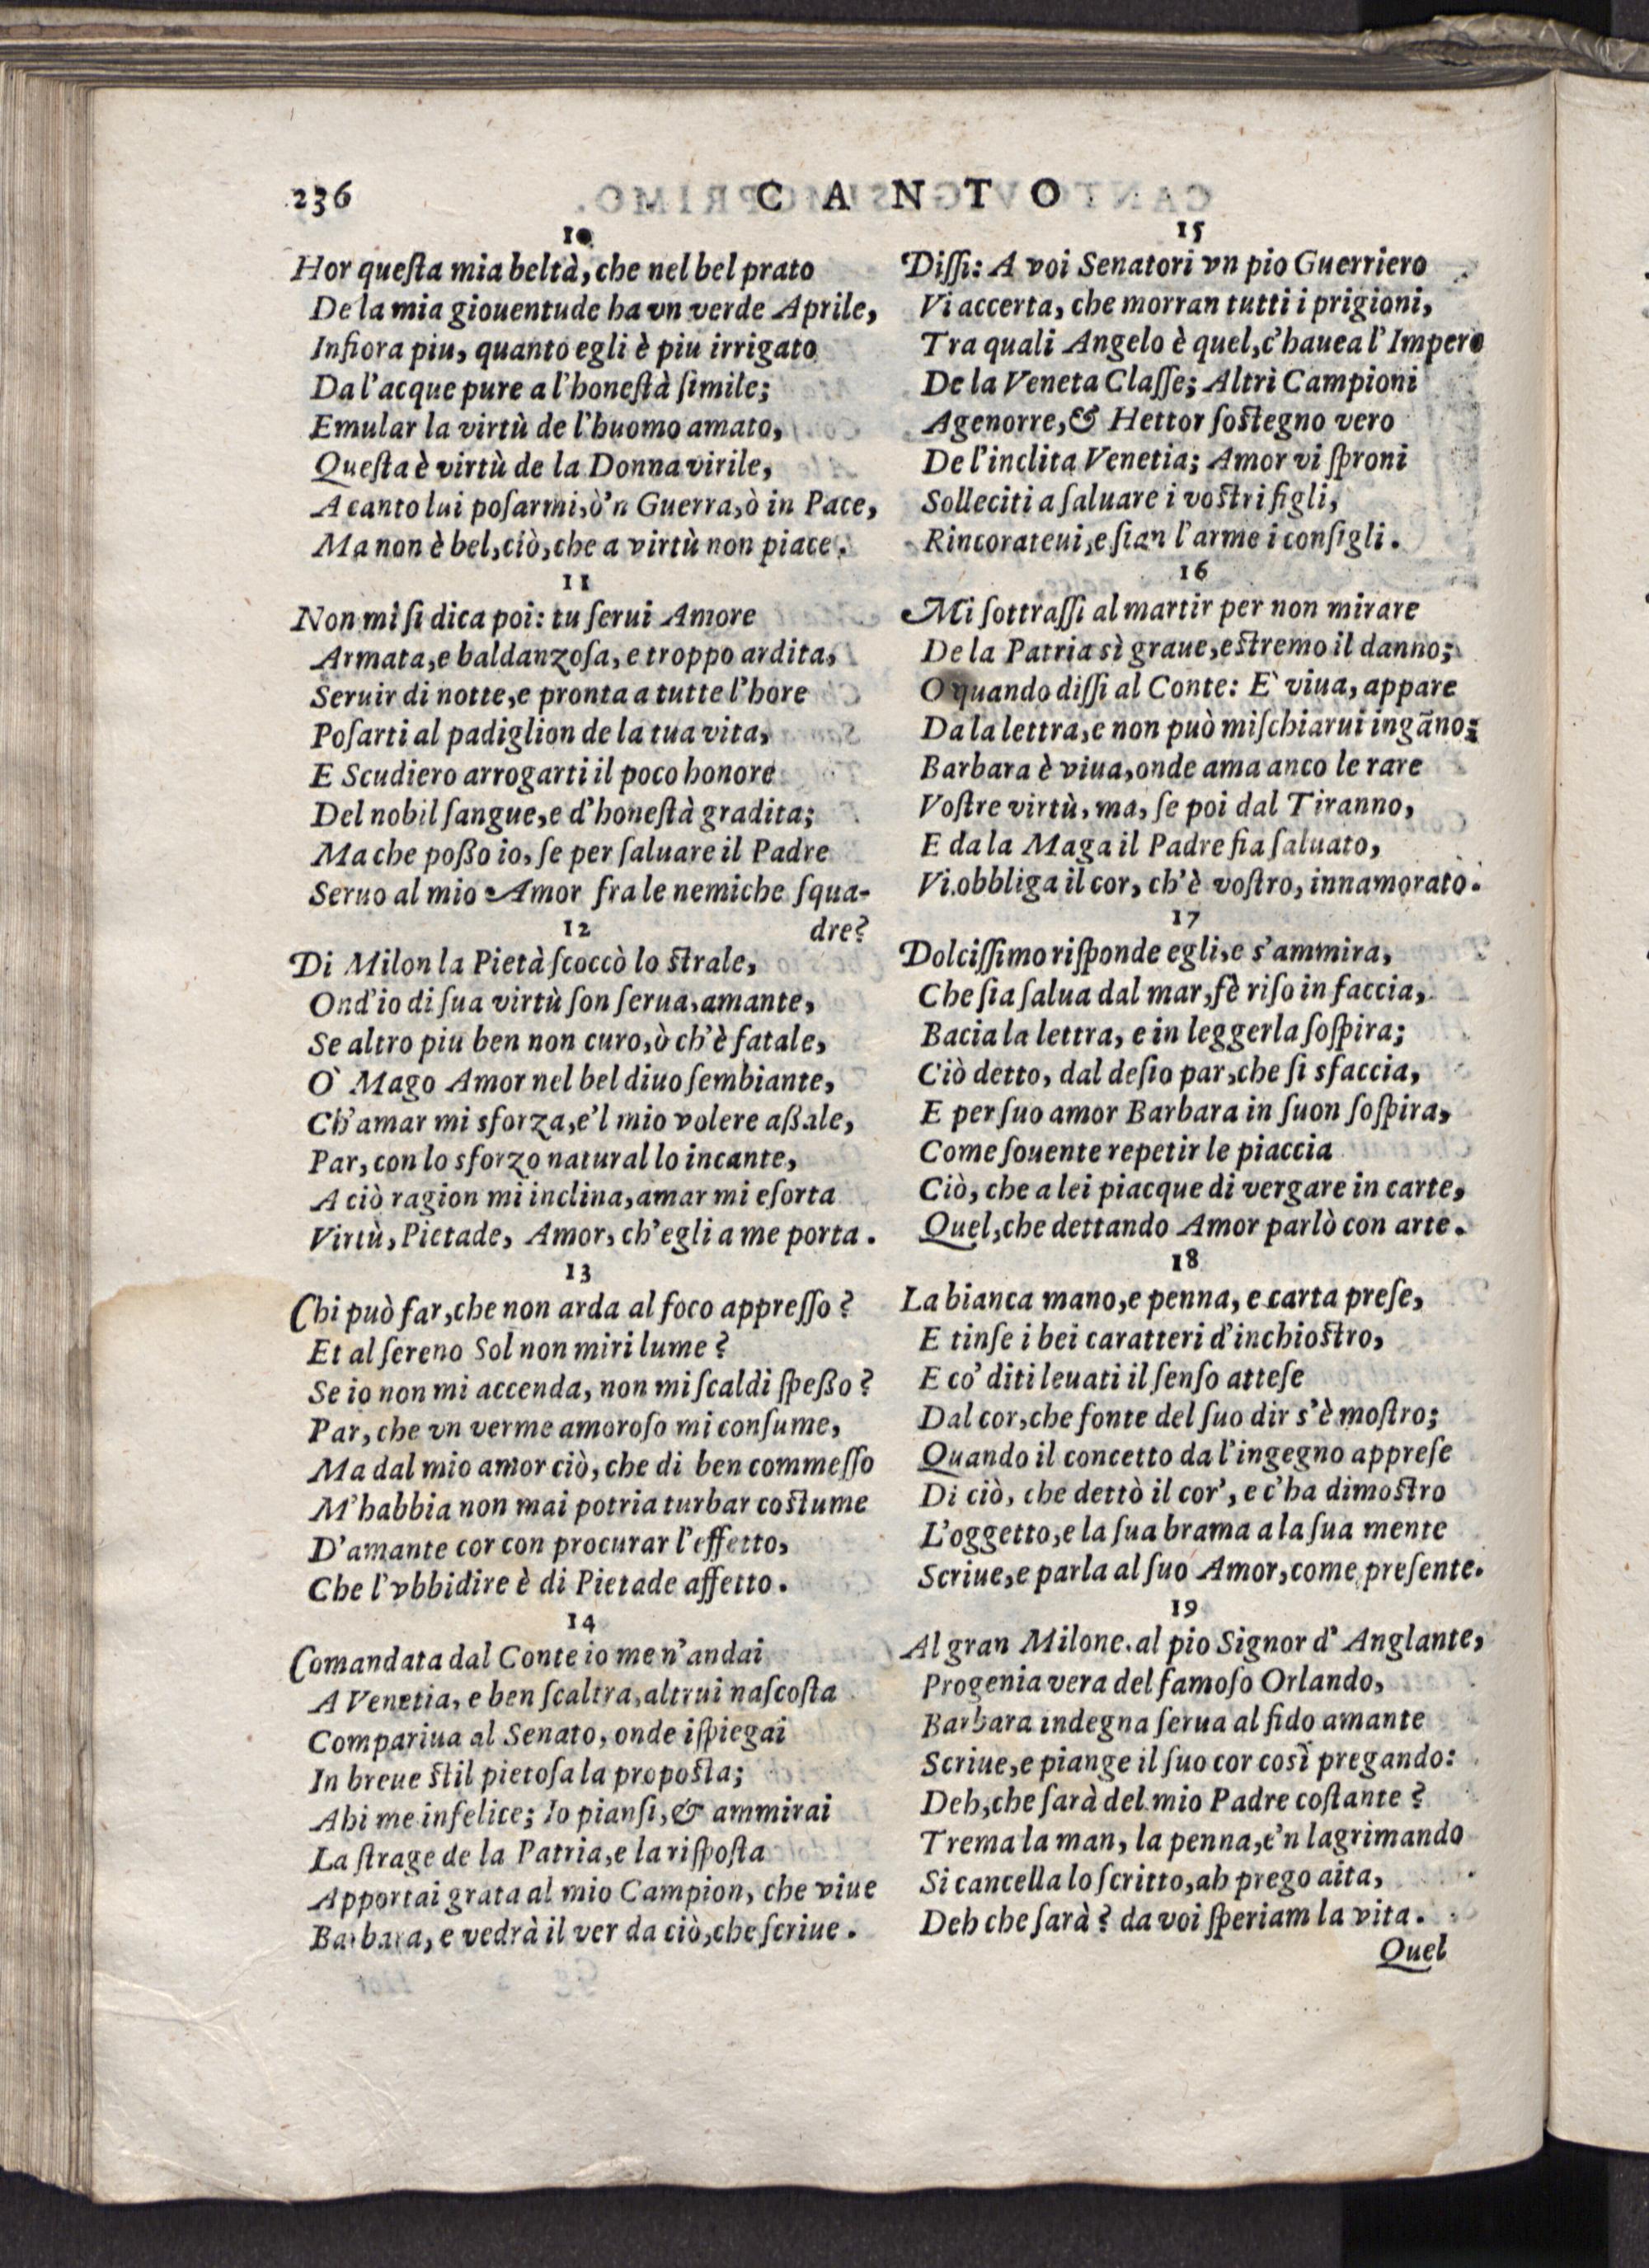 236
CANTO
10
Hor queſta mia beltà, che nel bel prato
De la mia giouentude ha vn verde Aprile,
Infiora piu, quanto egli è piu irrigato
Da l'acque pure a l'honeſtà ſimile;
Emular la virtù de l'huomo amato,
Queſta è virtù de la Donna virile,
A canto lui poſarmi, ò'n Guerra, ò in Pace,
Ma non è bel, ciò, che a virtù non piace.
11
Non mi ſi dica poi: tu ſerui Amore
Armata, e baldanzoſa, e troppo ardita,
Seruir di notte, e pronta a tutte l'hore
Poſarti al padiglion de la tua vita,
E Scudiero arrogarti il poco honore
Del nobil ſangue, e d'honeſtà gradita;
Ma che poßo io, ſe per ſaluare il Padre
Seruo al mio Amor fra le nemiche ſqua-
dre?
12
Di Milon la Pietà ſcoccò lo ſtrale,
Ond'io di ſua virtù ſon ſerua, amante,
Se altro piu ben non curo, ò ch'è fatale,
O' Mago Amor nel bel diuo ſembiante,
Ch'amar mi sforza, e'l mio volere aßale,
Par, con lo sforzo natural lo incante,
A ciò ragion mi inclina, amar mi eſorta
Virtù, Pietade, Amor, ch'egli a me porta.
13
Chi può far, che non arda al foco appreſſo?
Et al ſereno Sol non miri lume?
Se io non mi accenda, non mi ſcaldi ſpeßo?
Par, che vn verme amoroſo mi conſume,
Ma dal mio amor ciò, che di ben commeſſo
M'habbia non mai potria turbar coſtume
D'amante cor con procurar l'effetto,
Che l'vbbidire è di Pietade affetto.
14
Comandata dal Conte io me n'andai
A Venetia, e ben ſcaltra, altrui naſcoſta
Compariua al Senato, onde iſpiegai
In breue ſtil pietoſa la propoſta;
Ahi me infelice; Io pianſi, & ammirai
La ſtrage de la Patria, e la riſpoſta
Apportai grata al mio Campion, che viue
Barbara, e vedrà il ver da ciò, che ſcriue.
15
Diſſi: A voi Senatori vn pio Guerriero
Vi accerta, che morran tutti i prigioni,
Tra quali Angelo è quel, c'hauea l'Impero
De la Veneta Claſſe; Altri Campioni
Agenorre, & Hettor ſoſtegno vero
De l'inclita Venetia; Amor vi ſproni
Solleciti a ſaluare i voſtri figli,
Rincorateui, e ſian l'arme i conſigli.
16
Mi ſottraſſi al martir per non mirare
De la Patria sì graue, eſtremo il danno;
O quando diſſi al Conte: E' viua, appare
Da la lettra, e non può miſchiarui ingãno;
Barbara è viua, onde ama anco le rare
Voſtre virtù, ma, ſe poi dal Tiranno,
E da la Maga il Padre fia ſaluato,
Vi obbliga il cor, ch'è voſtro, innamorato.
17
Dolciſſimo riſponde egli, e s'ammira,
Che ſia ſalua dal mar, fè riſo in faccia,
Bacia la lettra, e in leggerla ſoſpira;
Ciò detto, dal deſio par, che ſi sfaccia,
E per ſuo amor Barbara in ſuon ſoſpira,
Come ſouente repetir le piaccia
Ciò, che a lei piacque di vergare in carte,
Quel, che dettando Amor parlò con arte.
18
La bianca mano, e penna, e carta preſe,
E tinſe i bei caratteri d'inchioſtro,
E co' diti leuati il ſenſo atteſe
Dal cor, che fonte del ſuo dir s'è moſtro;
Quando il concetto da l'ingegno appreſe
Di ciò, che dettò il cor', e c'ha dimoſtro
L'oggetto, e la ſua brama a la ſua mente
Scriue, e parla al ſuo Amor, come preſente.
19
Al gran Milone. al pio Signor d'Anglante,
Progenia vera del famoſo Orlando,
Barbara indegna ſerua al fido amante
Scriue, e piange il ſuo cor così pregando:
Deh, che ſarà del mio Padre coſtante?
Trema la man, la penna, e'n lagrimando
Si cancella lo ſcritto, ah prego aita,
Deh che ſarà? da voi ſperiam la vita.
Quel